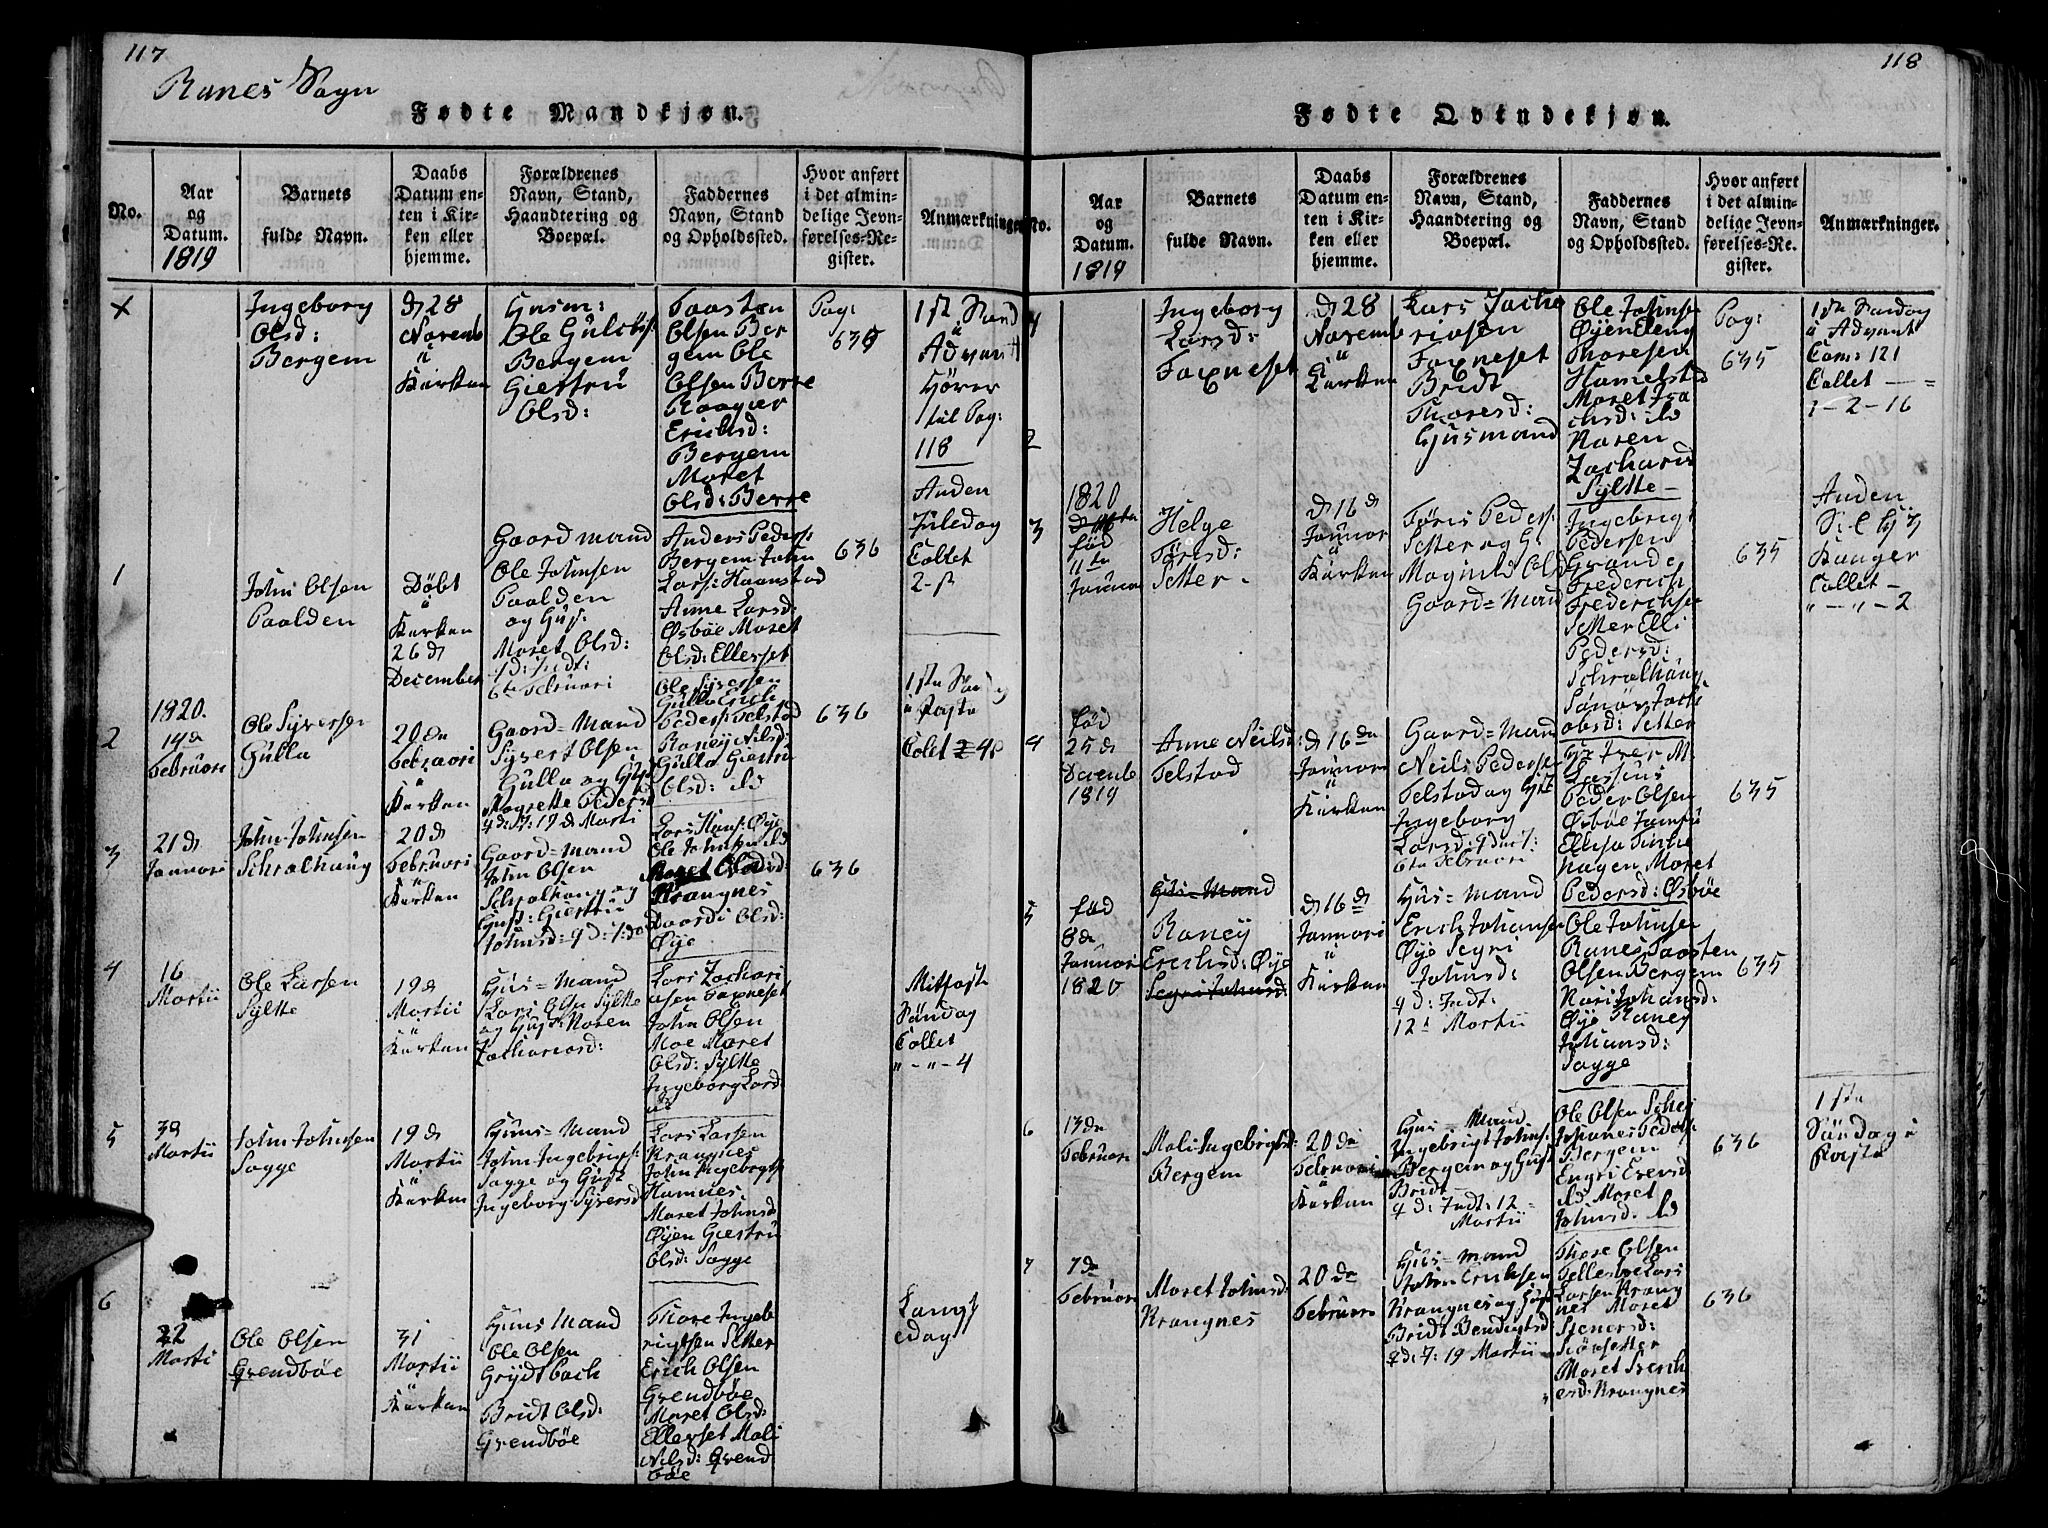 117
Ranes Sogn
Fødte Mandkjøn.
No.
Aar
og
Datum.
1819
Barnets
fulde Navn.
Daabs
Datum en-
ten i Kir-
ken eller
hjemme.
Forældrenes
Navn, Stand,
Haandtering og
Boepæl.
Faddernes
Navn, Stand
og Opholdssted.
Hvor anført
i det almin-
delige Jevn-
førelses-Re-
gister.
Anmærkninger
x
Ingeborg
Olsd:
Bergem
d 28
Novemb
Kürken
Husm:
Ole
Bergem
Giestrü
Olsd:
Taasten
Olsen Ber
gem Ole
Olsen Berre
Erichsd:
Bergem
Maret
Olsd: Berre
Pag:
636
Advent
Hörer
til Pag:
118
1
John Olsen
Paalden
Döbt
Kürken
26 d
December
Gaard mand
Ole Johnsen
Paalden
og Hus:
Maret Olsd:
6te Februari
Anders Peders:
Bergem John
Lars: Haanstad
Anne Larsd:
Øsböe Maret
Olsd: Ellerset
636
Anden
Juledag
Collet
2-ß
2
1820.
14d
Februari
Ole Syversen
Gülla
20 de
Februari
Kürken
Gaard=Mand
Syvert Olsen
Gülla og Hus
Magrette Pedersd
19 d Marti
Ole Syversen
Gülla Erich
Peders: Telstad
Raney Nilsd:
Gülla Giestrü
Olsd: ibd
636
Collet
3
21 d
Januari
John Johnsen
Schralhaug
20 d
Februari
Kürken
Gaard=Mand
John Olsen
Schralhaug og
Hus: Giestrü
Johnsd:
Lars Hans: Øye
Ole Johnsen ibd
Maret
Krangnes
Baardi Olsd:
Øye
636
4
16
Martii
Ole Larsen
Sylte
19 d
Martii
Kürken
Hüs=Mand
Lars Olsen Sylte
og Hus: Maren
Zachariasd:
Lars Zachari
asen Faxneset
John Olsen
Moe Maret
Olsd: Sylte
Ingeborg Larsd
Mitfaste
Söndag
Collet
"-"-4
5
3d
Martii
John Johnsen
Sagge
19 d
Martii
Kürken
Hüus=Mand
John Ingebrigs:
Sagge og Hust
Ingeborg Syversd
Lars Larsen
Krangnes
John Ingebrigts
Hamnes
Maret Johnsd
Øyen Giestrü
Olsd: Sagge
6
22
Marti
Ole Olsen
Grendböe
31
Martii
Kürken
Hüus Mand
Ole Olsen
Bridt Olsd:
Grendböe
Thore Ingeb
rigtsen Setter
Erich Olsen
Grendböe
Maret Olsd:
Ellerset Mali
Nilsd: Grend
böe
Langf
edag
118
Fødte Qvindekjøn.
No.
Aar
og
Datum.
1819
Barnets
fulde Navn.
Daabs
Datum en-
ten i Kir-
ken eller
hjemme.
Forældrenes
Navn, Stand,
Haandtering og
Boepæl.
Faddernes
Navn, Stand
og Opholdssted.
Hvor anført
i det almin-
delige Jevn-
førelses-Re-
gister.
Anmærkninger.
Ingeborg
Larsd:
Faxneset
d 28
Novemb
Kürken
Lars Zacha
riasen
Faxneset
Bridt
Thoresd:
Husmand
Ole Johnse
Øyen Eleng
Thoresen
Hamelstad
Maret
ibd
Maren
Zacharisd
Sylte
Pag:
635
1ste Søndag
Advent
Com: 121
Collet
1-2-16
2
3
1820
fød
11te
Januar
Helge
Töresd:
Setter
d 16 d
Januar
Kürken
Töris Peders:
Setter og H:
Magnild Olsd
Gaard=Mand
Ingebrigt
Pedersen
Grande
Frederich
Frederichse
Setter Elli
Pedersd:
Schralhaug
Jach
obsd: Setter
635
Anden
Collet
"-"-2
4
fød
25 d
Decemb
1819
Anne Neilsd:
Telstad
d 16 de
Januari
Kürken
Gaard=Mand
Neils Pederse
Telstad og Hus
Ingeborg
Larsd:
6te Februari
Hr Iver M
Lassens
Peder Olsen
Øsböe
Maret
Pedersd: Øsböe
635
5
fød
8de
Januari
1820
Hüs=Mand
Raney
Erichsd: Øye
Segri Johnsd:
d 16 d
Januari
Kürken
Hüs=Mand
Erich Johansen
Øye Segri
Johnsd:
12 d Martii
Ole Johnsen
Ranes Taasten
Olsen Bergem
Mari Johansd:
Øye Raney
Johansd:
Sagge
635
6
13 de
Februari
Mali Ingebrigtsd:
Bergem
20 de
Februari
Kürken
Hüus=Mand
Ingebrigt Johns:
Bergem og Hust
Bridt
12
Martii
Ole Olsen
Johanes Peders:
Bergem
Engri Ewensd
ibd Maret
Johnsd: ibd
636
1ste
Søndag i
Faste
7
7 de
Februari
Maret Johnsd:
Krangnes
20 de
Februari
Hüs=Mand
John Ericksen
Krangnes og Hus
Bridt Bendigtsd
19 Martii
Thore Olsen
Telleböe Lars
Larsen Krang
nes Maret
Siörsetter
Maret
Krangnes
636